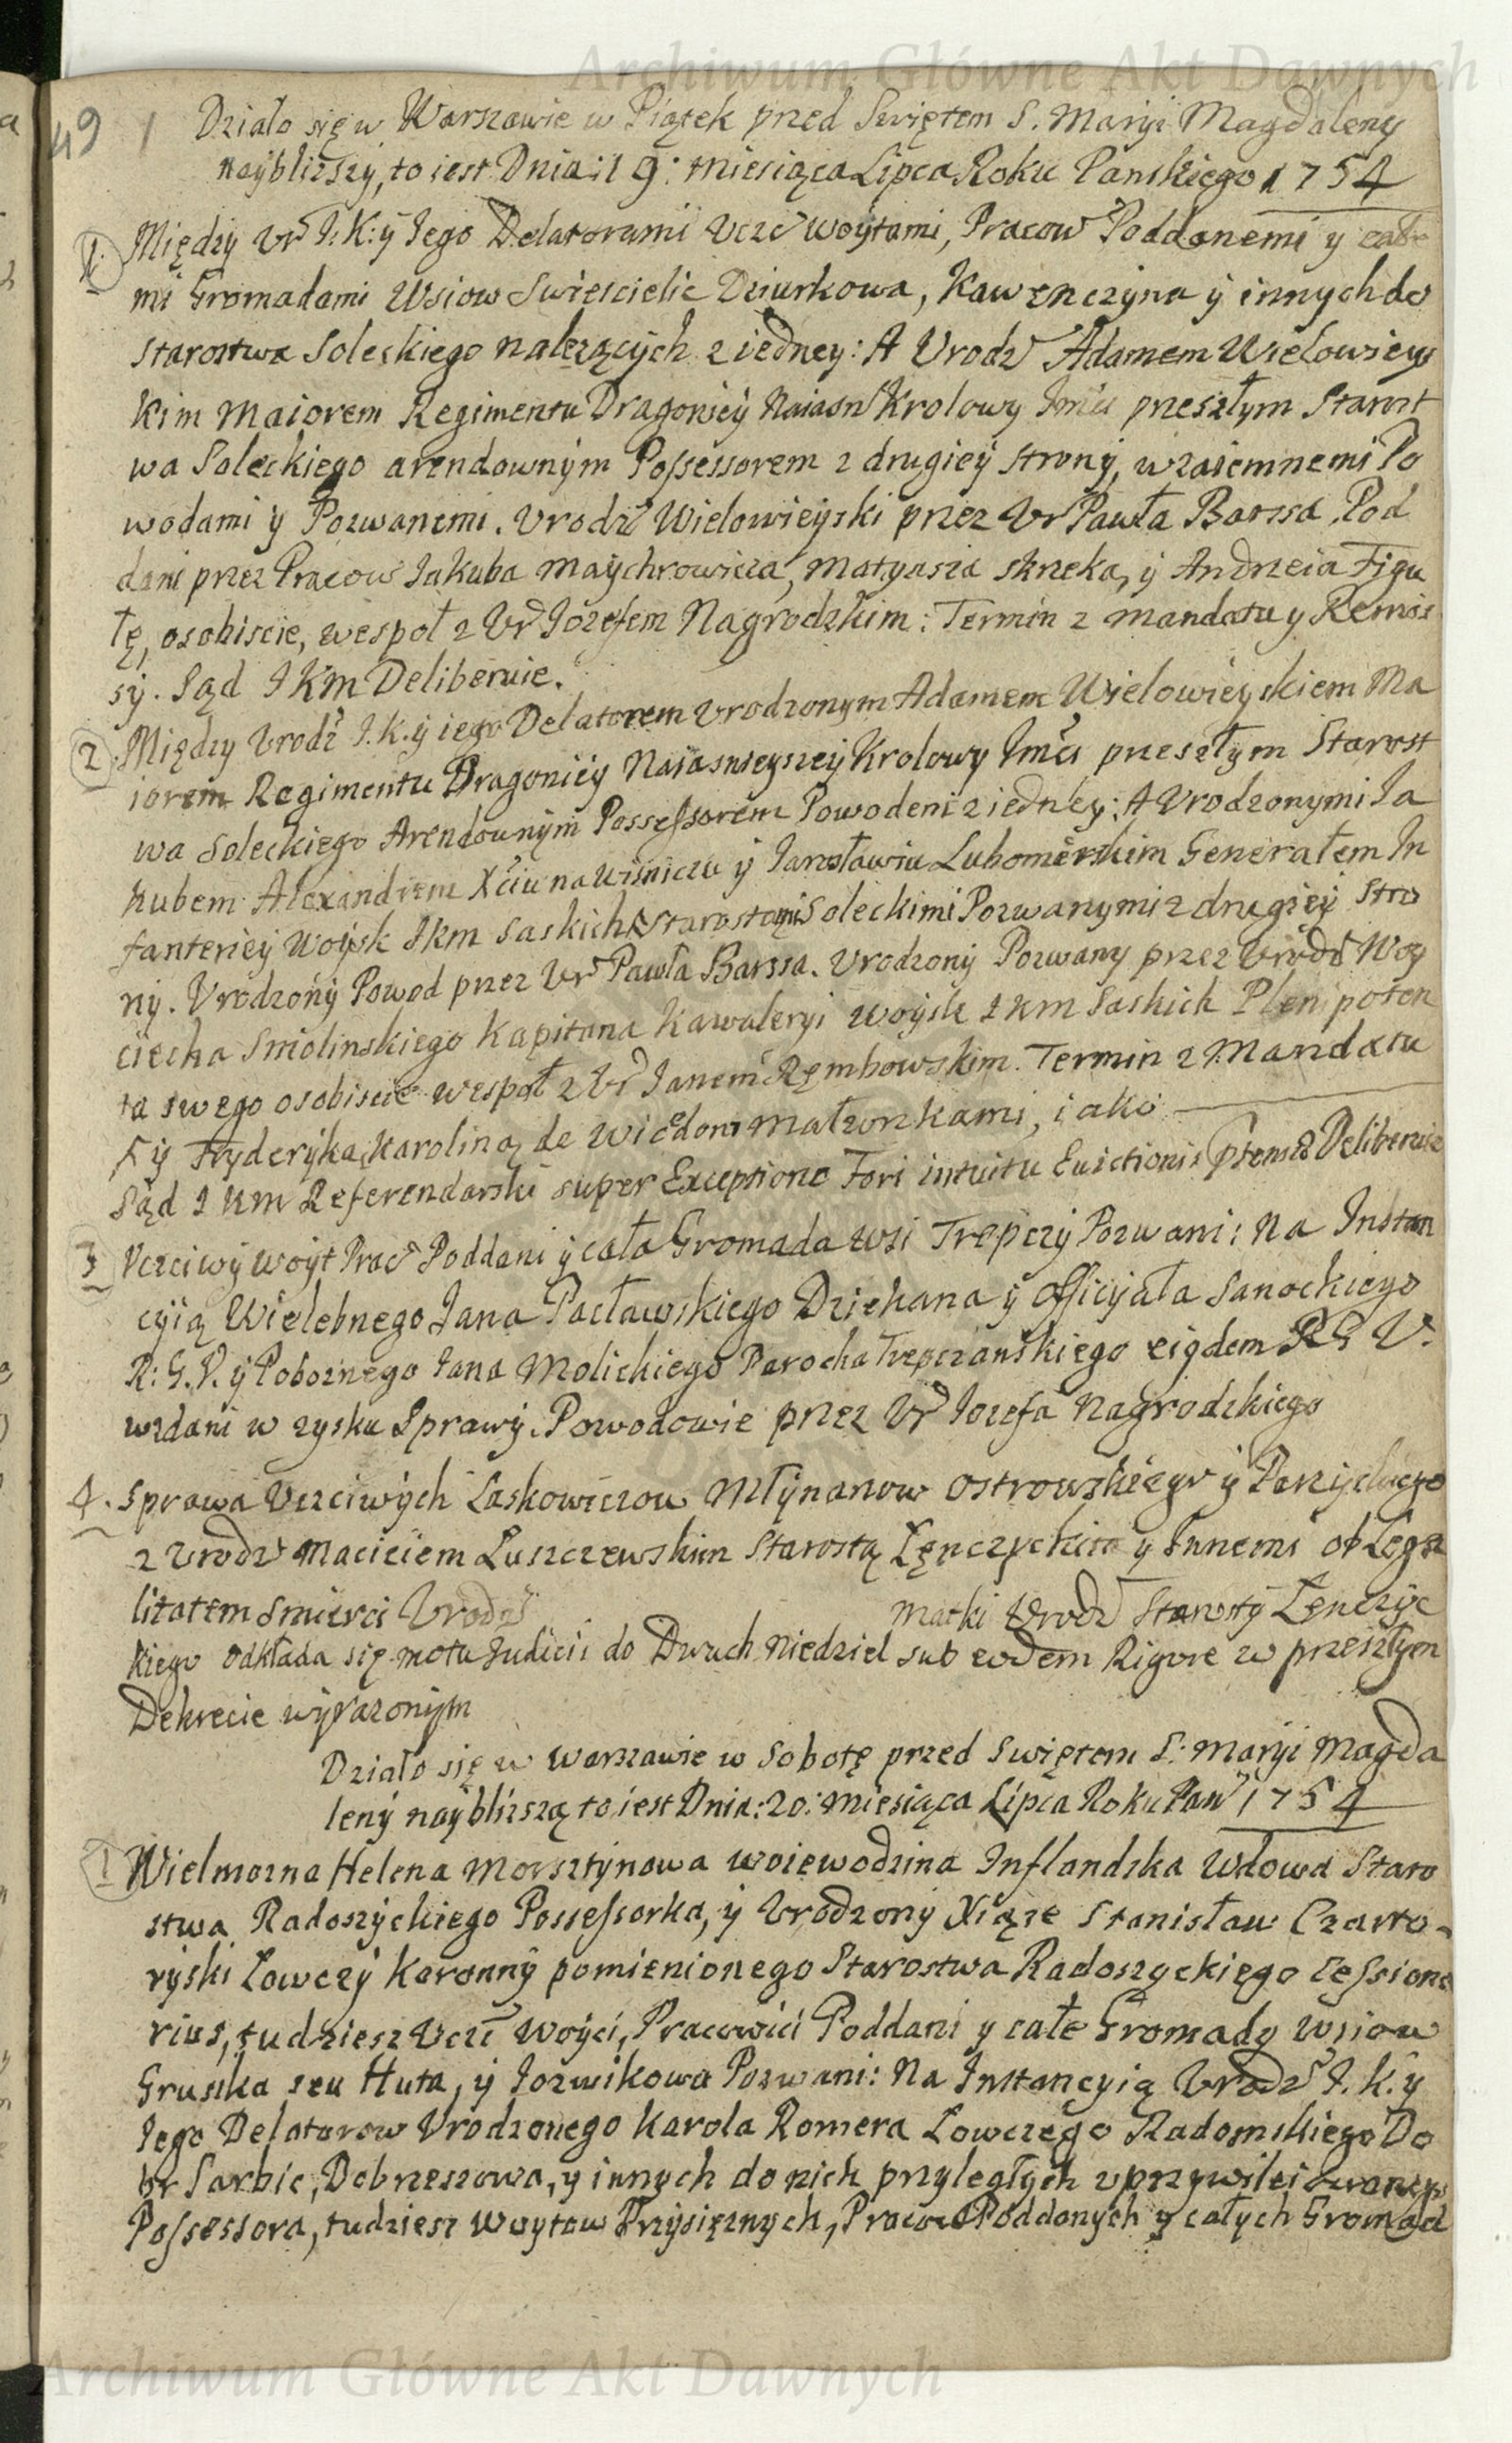 Archiwum Główne Akt Dawnych
49 1 Działo się w Warszawie w Piątek przed Swiętem S. Maryi Magdaleny
naybliższy, to iest Dnia: 19: Miesiąca Lipca Roku Panskiego 1754
1. Między Ur J: K: y Iego Delatorami Uczc woytami, Pracow Poddanemi y całe
mi Gromadami Wsiow Swiescielic Dziurkowa, Kawenczyna y innych do
starostwa Soleckiego nalezących z iedney: A Urodz Adamem Wielowieys
kim Maiorem Regimentu Dragoniey Naiasn Krolowy Jmci przeszłym Starost
wa Soleckiego arendownym Possessorem z drugiey strony, wzaiemnemi Po
wodami y Pozwanemi. Urodz Wielowieyski przez Ur Pawła Barssa. Pod
dani przez Pracow Iakuba Maychrowicza, Matyasza Skrzeka, y Andrzeia Figu
łę, osobiscie, wespoł z Ur Iozefem Nagrodzkim: Termin z Mandatu y Remis
sy. Sąd JKM Deliberuie.
2 Między Urodz J. K. y iego Delatorem Urodzonym Adamem Wielowieyskiem Ma
iorem Regimentu Dragoniey Naiasnieyszey Krolowy Jmci przeszłym Starost
wa Soleckiego Arendownym Possessorem Powodem z iedney: A Urodzonymi Ia
kubem Alexandrem Xciu na Wisniczu y Iarosławiu Lubomirskim Generałem In
fanteriey Woysk Jkm Saskich Starostami Soleckimi Pozwanymi z drugiey stro
ny. Urodzony Powod przez Ur Pawła Barssa. Urodzony Pozwany przez Urodz Woy
ciecha Smolinskiego Kapitana Kawaleryi woysk Jkm Saskich Plenipoten
ta swego osobiscie wespoł z Ur Ianem Rembowskim. Termin z Mandatu
y Fryderyką Karoliną de Małzonkami, iako
Sąd Jkm Referendarski super Exceptione Fori intuitu Evictionis Deliberuie
3 Uczciwy woyt Prac Poddani y cała Gromada wsi Trepczy Pozwani: Na Instan
cyią Wielebnego Iana Pacławskiego Dziekana y Officyała Sanockiego
R: G. V. y Poboznego Iana Molickiego Parocha Trepczanskiego eigdem R G V.
wzdani w zysku Sprawy. Powodowie przez Ur Iozefa Nagrodzkiego
4. Sprawa Uczciwych Laskowiczow Młynarzow Ostrowskiego y
z Urodz Macieiem Luszczewskim Starostą Łęnczyckim y Innemi ob Lega
litatem Smierci Urodz Matki Urodz Starosty Łenczyc
kiego odkłada się motu Iudicii do Dwuch Niedziel sub eodem Rigore w przeszłym
Dekrecie wyrazonym
Działo się w Warszawie w Sobotę przed Swiętem S: Maryi Magda
leny naybliszszą to iest Dnia: 20: Miesiąca Lipca Roku Pań 1754
1 Wielmozna Helena Morsztynowa woiewodzina Inflandzka Wdowa Staro
stwa Radoszyckiego Possessorka, y Urodzony Xiąze Stanisław Czarto-
ryski Łowczy Koronny pomienionego Starostwa Radoszyckiego Cessiona
rius, tudziesz Uczc Woyci, Pracowici Poddani y całe Gromady wsiow
Gruszka seu Huta, y Iozwikowa Pozwani: Na Instancyią Urodz J. K. y
Iego Delatorow Urodzonego Karola Romera Łowczego Radomskiego Do
br Sarbic, Dobrzeszowa, y innych do nich przyległych uprzywileiowanego
Possessora, tudziesz Woytow Przysięznych, Pracow Poddanych y całych Gromad
Archiwum Główne Akt Dawnych